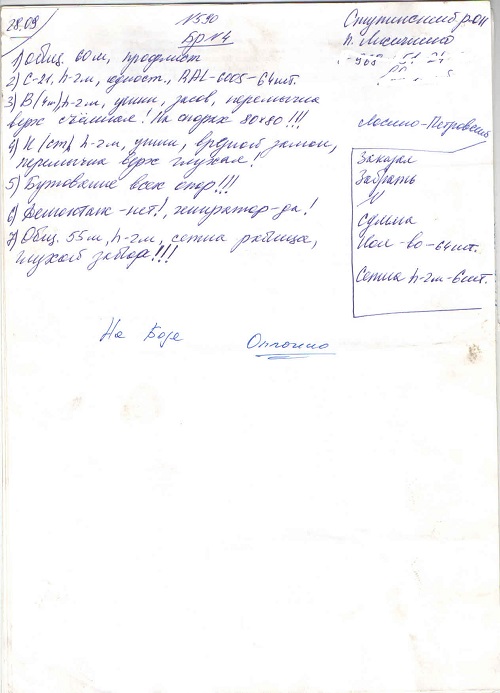 28.09
№590
Бр №4
Ступинский р-он
п.
1) общ. 60м, профлист
2) С-21, h-2м, одност., RAL-6005-64шт.
3) В(4м) h-2м, ушки, засов, перемычка
верх съёмная! На опорах 80х80!!!
4) К(ст) h-2м, ушки, врезной замок,
перемычка верх глухая!
5) Бутование всех опор!!!
6) Демонтаж-нет!, генератор-да!
7) Общ. 55м, h-2м, сетка рабица,
глухой забор!!!
Лосино-Петровский
Заказал
Забрать
Сумма
Кол-во-64шт.
Сетка h-2м-6шт.
На Базе
Оплачено